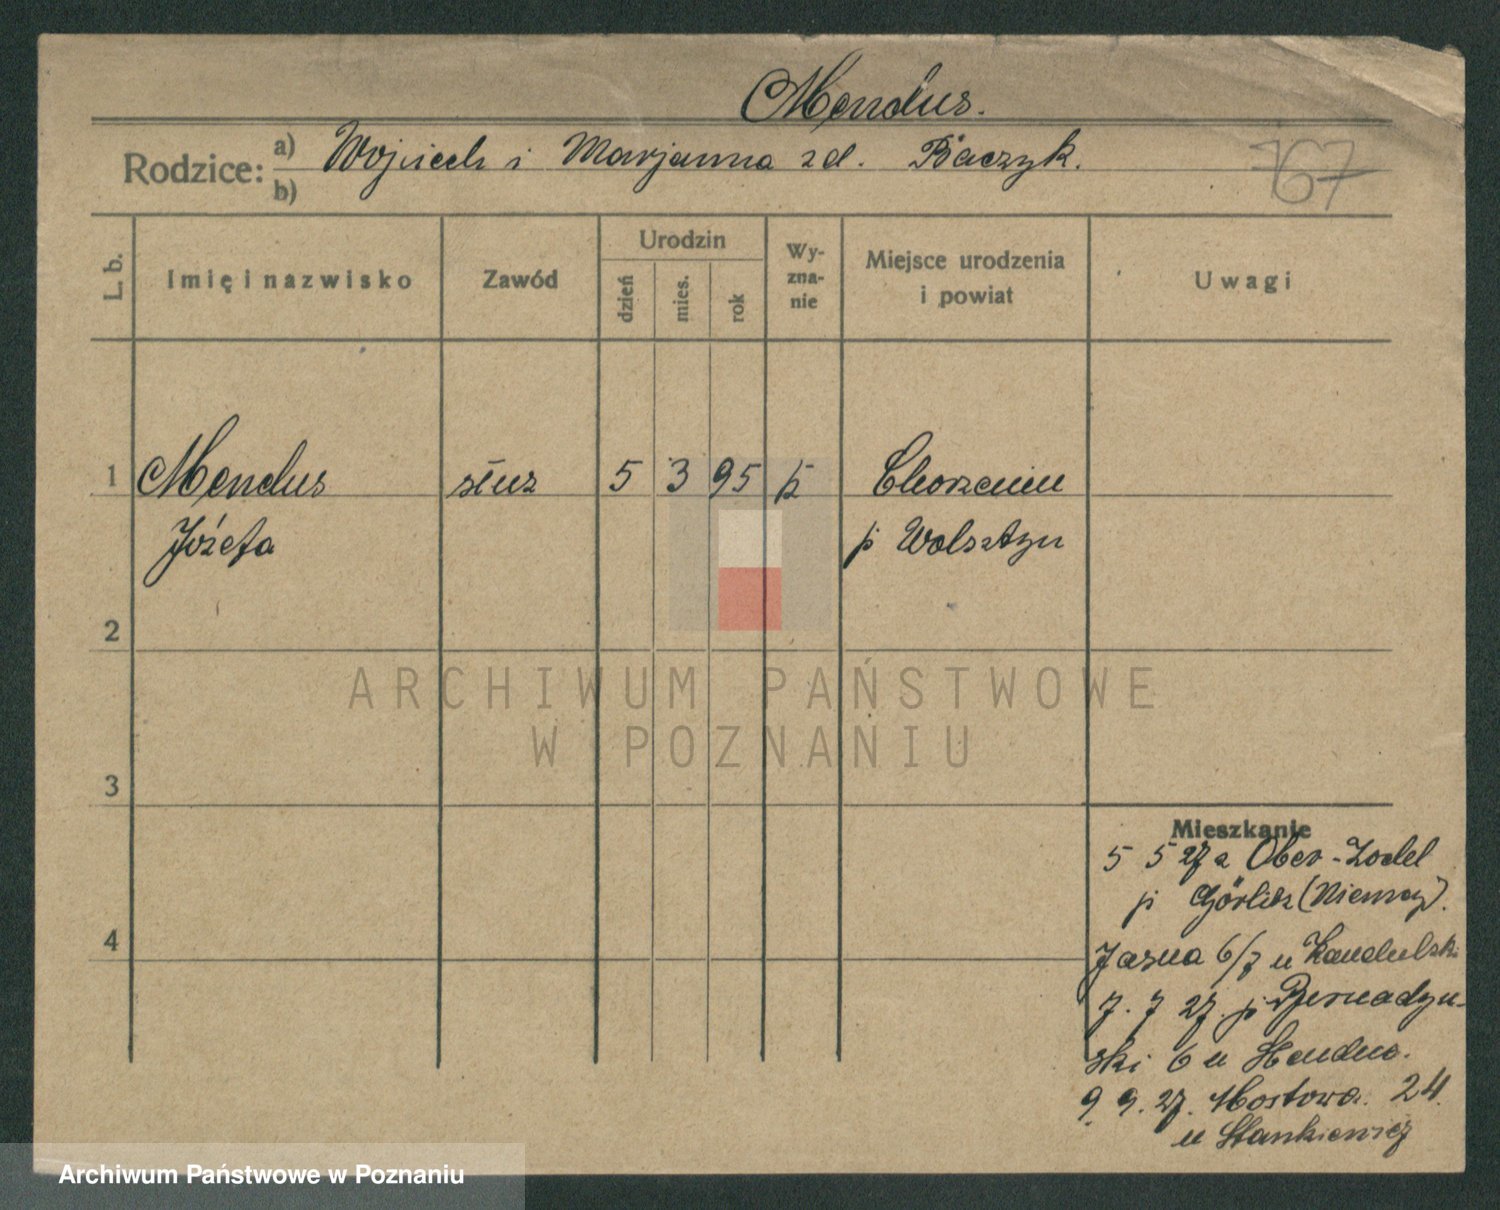 Mendus.
Rodzice: a) Wojciech i Marjanna zd. Baczyk.
b)
767
L. b.
Imię i nazwisko
Zawód
Urodzin
dzień
mies.
rok
Wy-
zna-
nie
Miejsce urodzenia
i powiat
Uwagi
1 Mendus służ 5 3 95 k Chorzemin
Józefa p Wolsztyn
2
ARCHIWUM PAŃSTWOWE
W POZNANIU
3
Mieszkanie
5 5 27 z Ober-Zodel
p Görlitz (Niemcy).
4
Jasna 6/7 u Kandulski
7. 7 27. pl Bernadyń-
ski 6 u
9. 9. 27. Mostowa. 24.
u Stankiewicz
Archiwum Państwowe w Poznaniu